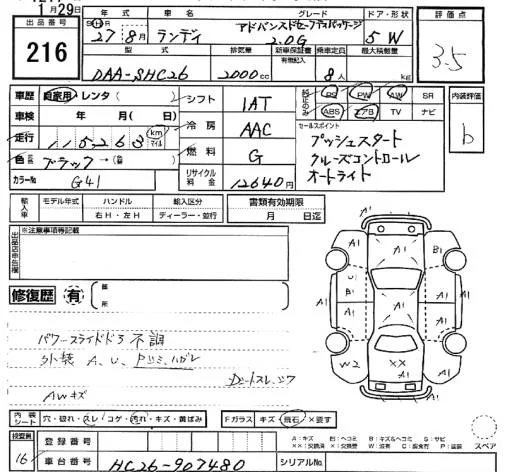 月29日
出品番号 年式 車名 グレード ドア・形状 評価点
216
27年8月 ランディ アドバンスドセーフティパッケージ 2.0G 5W
3.5
型式 排気量 新車保証書 有無記入 乗車定員 最大積載量
DAA-SHC26 2000cc 8人 kg
車歴 自家用・レンタ( ) シフト IAT PS PW AW SR 内装評価
車検 年 月( 日) 冷房 AAC ABS エアB TV ナビ b
走行 115263 km マイル 燃料 G セールスポイント
色 ブラック→(色 ) リサイクル料金 12640円
カラーNo G41
プッシュスタート
クルーズコントロール
オートライト
輸入車 モデル年式 ハンドル 輸入区分 書類有効期限
右H・左H ディーラー・並行 月 日迄
出品店申告欄 ※注意事項等記載
修復歴 有 箇所
A1 A1 B1 A1 A1
U1 B1 A1 A1 A1
A1 A1 W2 XX A1
パワースライドドア不調
外装 A、U、
AWキズ
内装シート 穴・破れ・スレ・コゲ・汚れ・キズ・黄ばみ Fガラス キズ・飛石・×要す
スペア
A：キズ E：ヘコミ B：キズ&ヘコミ S：サビ
検査員 16 登録番号
車台番号 HC26-907480 シリアルNo.